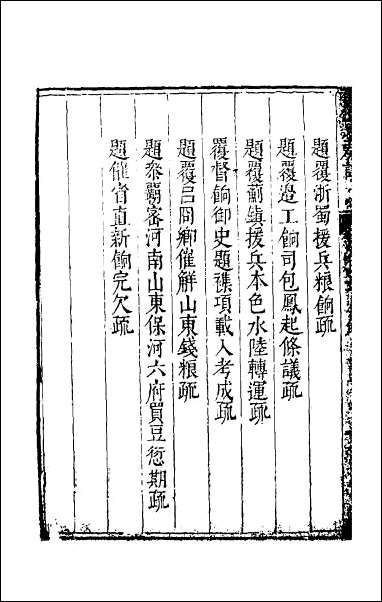 題覆浙蜀援兵粮餉疏
題覆邉工餉司包鳳起條議疏
題覆薊鎮援兵本色水陸轉運疏
覆督餉御史題襍項載入考成疏
題覆吕同卿催解山東錢粮疏
題叅霸宻河南山東保河六府買豆愆期疏
題催省直新餉完欠疏